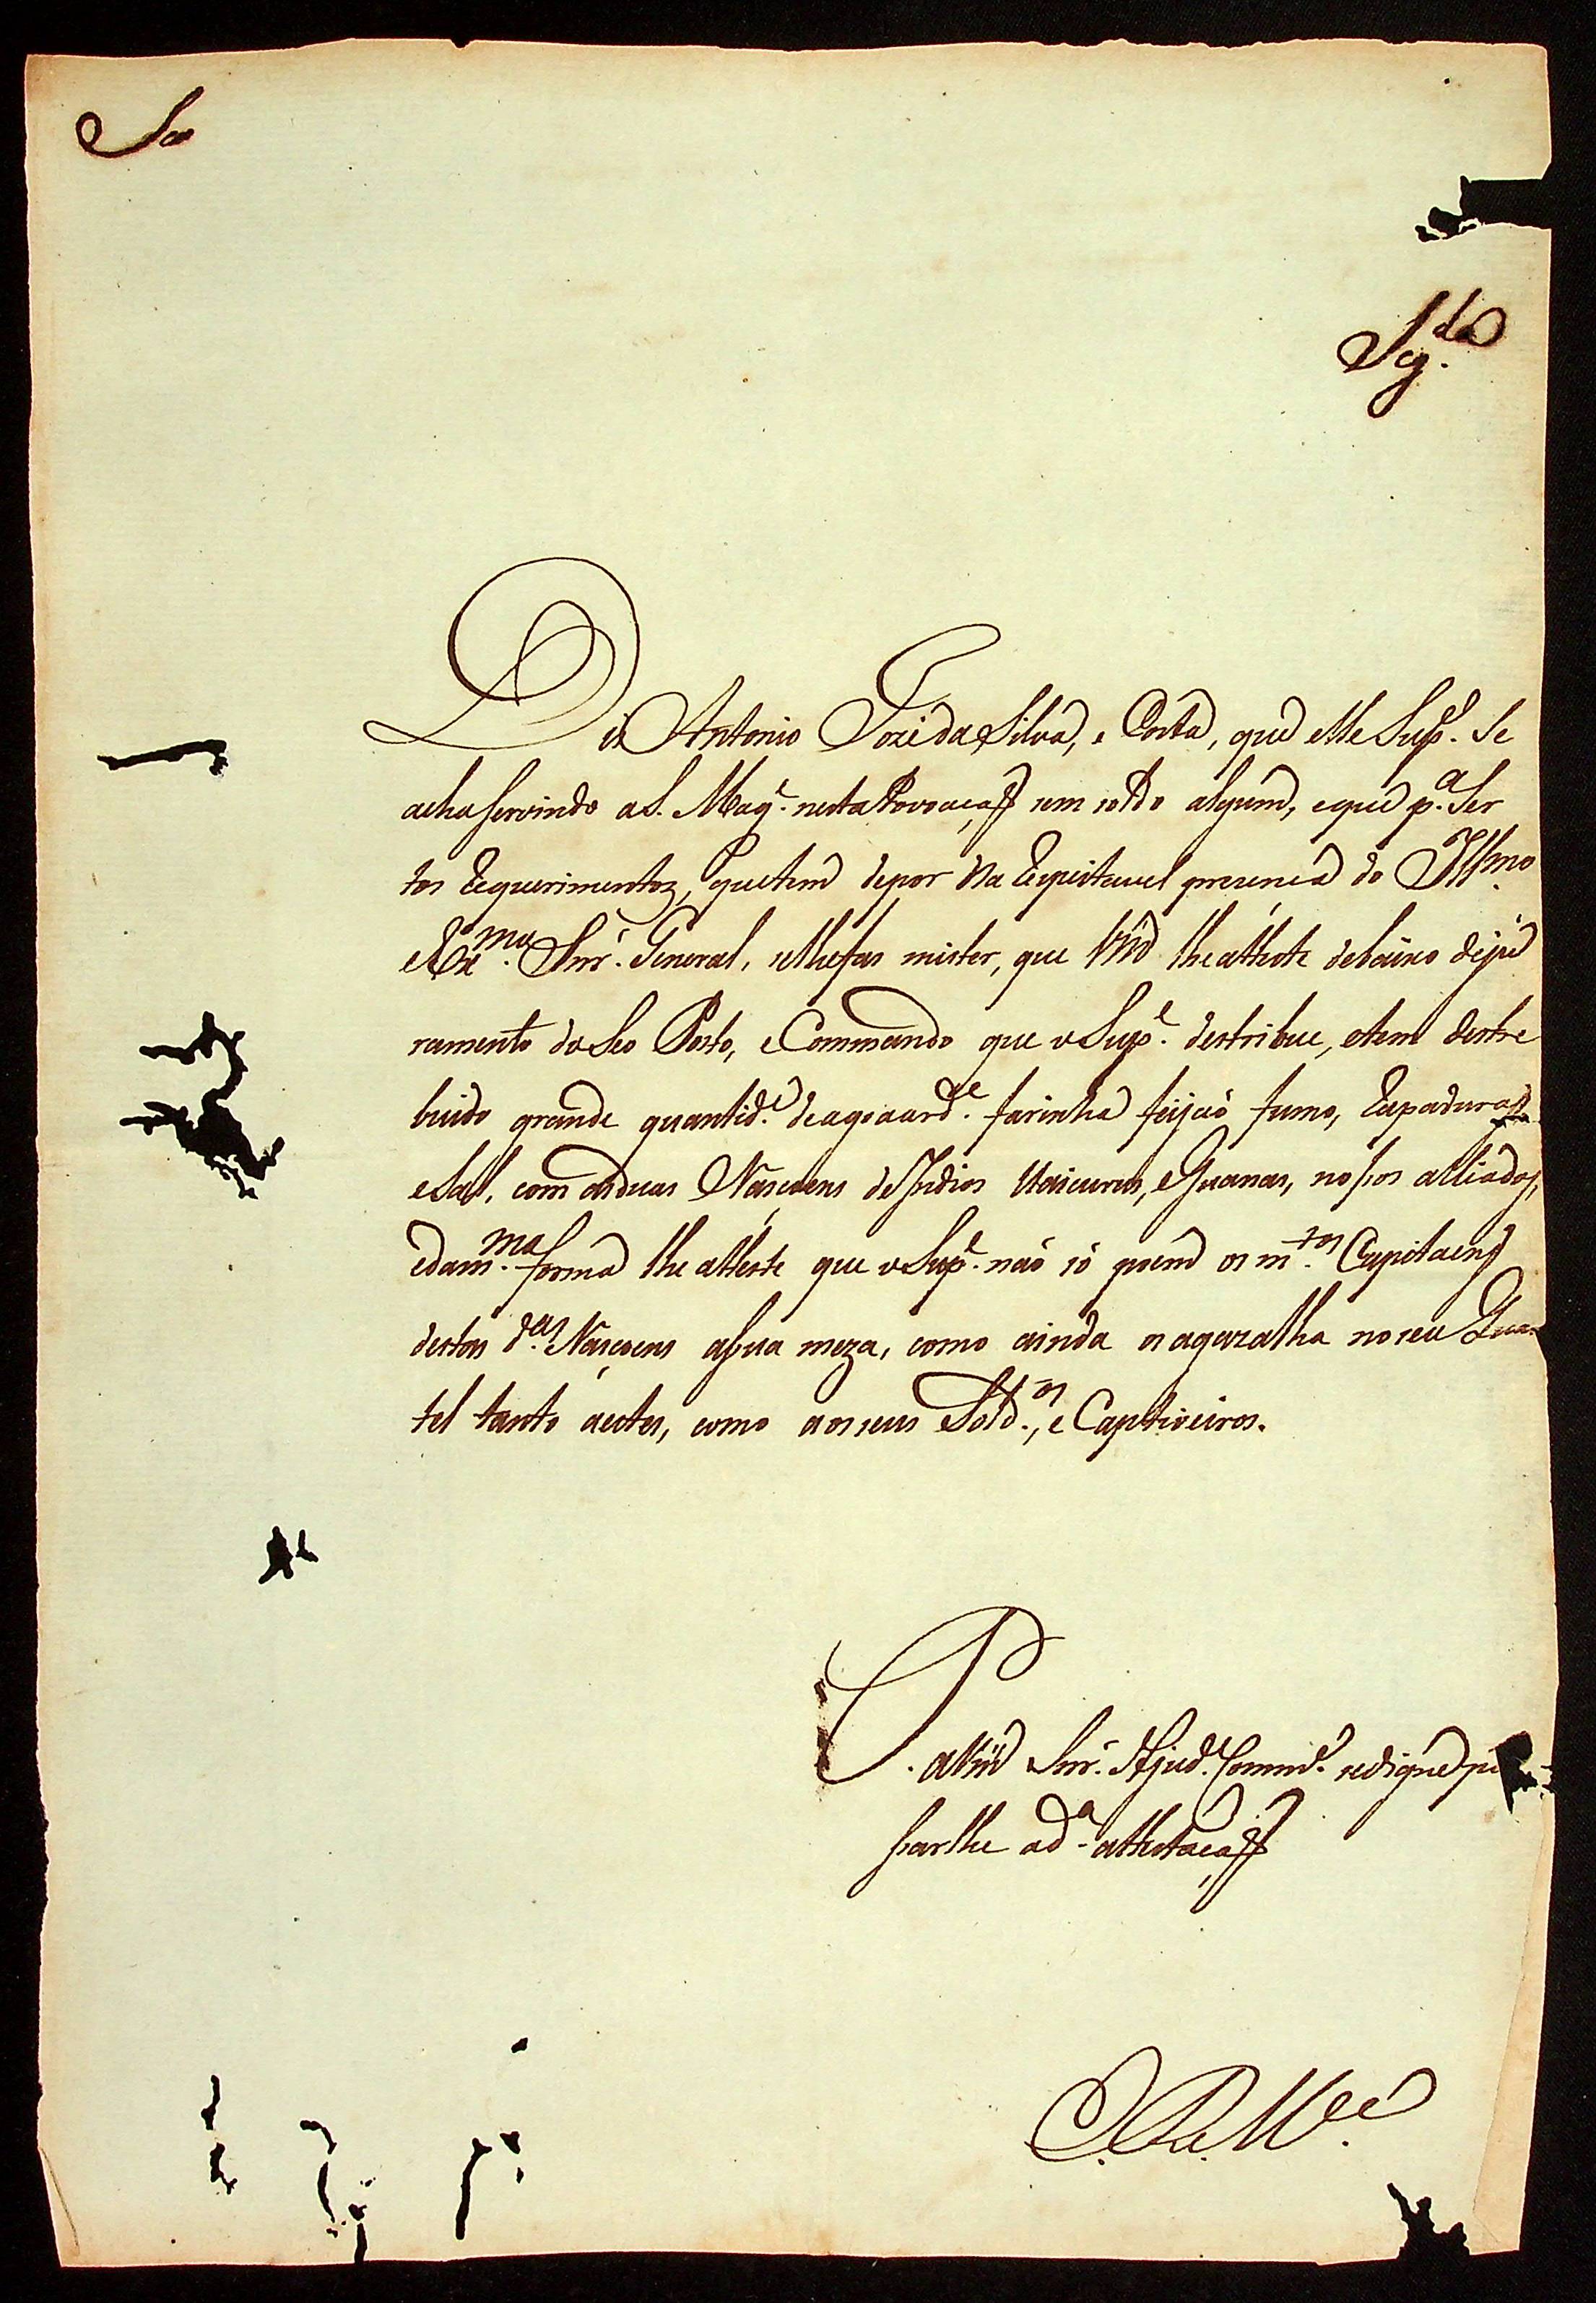 Sa
Sg.da
Dis Antonio Joze da Silva, e Costa, que elle Sup.e Se
acha servindo a S. Mag.e nesta Povoaçaõ sem soldo algum, e que p.a Ser
tos Requerimentoz, que tem depor na Respeitavel prezença do Illmo.
e Ex.mo Snr. General, se lhe fas mister, que Vm.ce lhe atteste debaixo deju
ramento do Seo Posto, e Commando que o Sup.e destribue, e tem destre
buido grande quantid.e de agoaard.e farinha feijaó fumo, Rapaduras
e Sal, com as duas Nasçoens de Indios Uaicurus, e Guanas, nossos alliados,
e da m.ma forma lhe atteste que o Sup.e não só poem os m.tos Capitaens
destas d.as Nasçoens a sua meza, como ainda os agazalha no seu Quar
tel tanto aestes, como aos seus Sold.os, e Captiveiros.
P. a Vm.ce Snr. Ajud.e Comm.de se digne pa
sar lhe a d.a attestaçaõ
E. R. M.ce